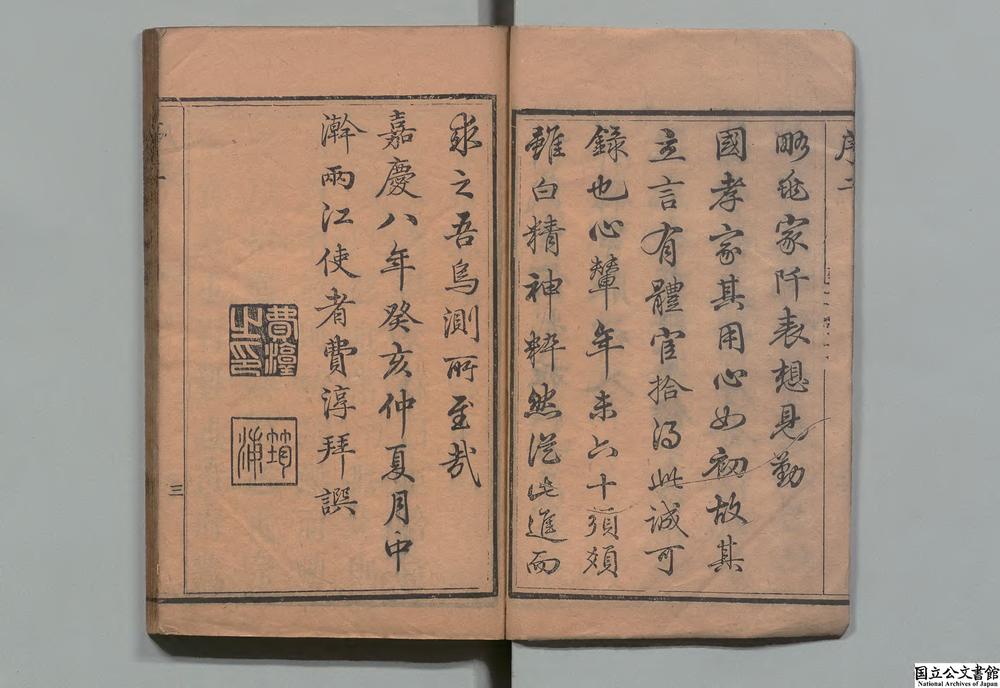 序二
略瀧家阡表想見勤
國孝家其用心如初故其
立言有體官拾得此誠可
錄也心輦年未六十鬚頰
雖白精神粹然從此進而
求之吾烏測所至哉
嘉慶八年癸亥仲夏月中
澣兩江使者費淳拜譔
費淳之印
筠浦
三
国立公文書館
National Archives of Japan